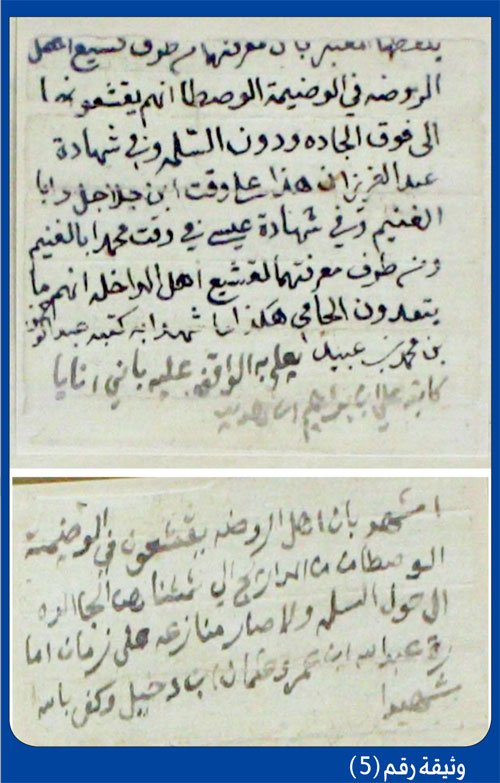 بان معرفتهما من طرف تسيع اهل
الروضه في الوضيمة الوصطا انهم يقشعو نها
الى فوق الجاده ودون السلمه وفي شهادة
عبد العزيز ان هذا على وقت ابن جلاجل وابا
الغنيم وفي شهادة عيسى في وقت محمد ابا الغنيم
ومن طرف معرفتهما لقشيع اهل الداخله انهم ما
يتعدون الحامي هكذا شهدا به كتبه
بن محمد بن عبيد يعلم به الواقف عليه باني انا يا
كاتبه علي ابن
اشهد بان اهل الروضه يقشعون في الوضيمة
الوصطا من الجاده
الى حول السلمه ولا صار منازعه على زمان اما
رة عبدالله ابن عمر وعثمان ابن دخيل وكفى بالله
شهيدا
وثيقة رقم (5)